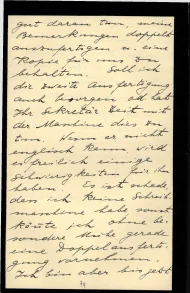 gut daran tun, meine
Bemerkungen doppelt
auszufertigen u. eine
Kopie für uns zu
behalten. Soll ich
die zweite Ausfertigung
auch besorgen od. hat
Ihr Sekretär Zeit mit
der Maschine dies zu
tun. Wenn er nicht
englisch kann, wird
es freilich einige
Schwierigkeiten für ihn
haben. Es ist schade,
dass ich keine Schreib
maschine habe, sonst
könnte ich ohne be
sondere Mühe gerade
eine Doppelausferti
gung vornehmen.
Ich bin aber bis jetzt